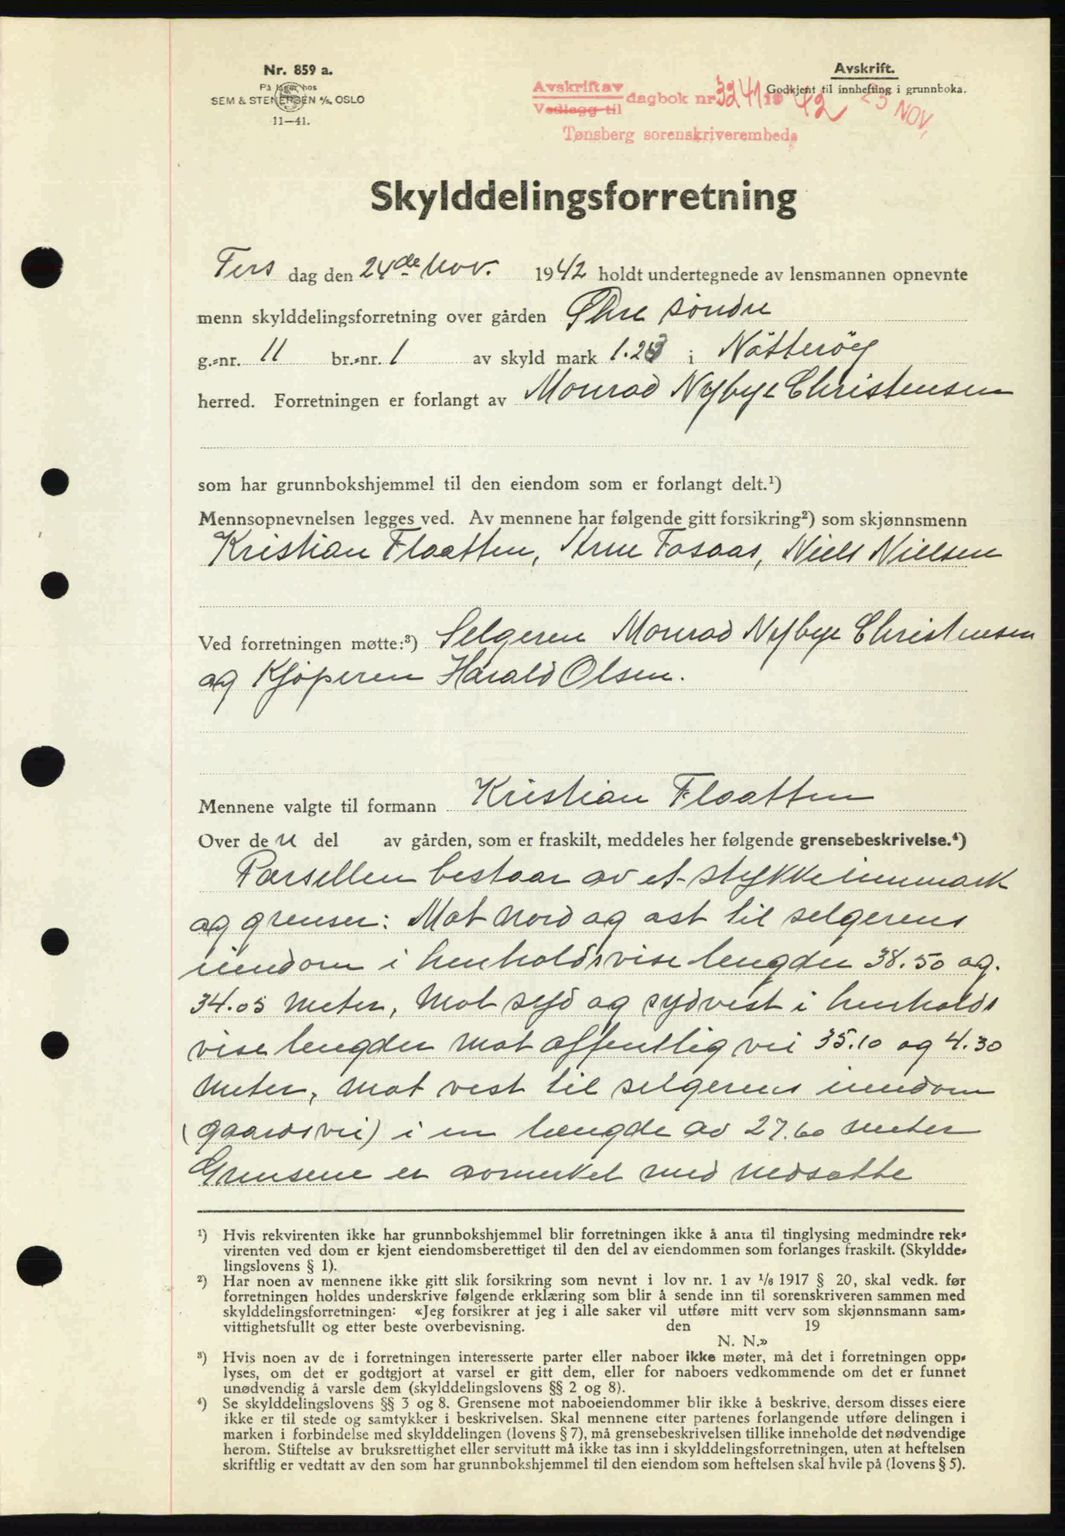 Nr. 859 a.
På lager hos
SEM & STENERSEN A/S, OSLO
11—41.
Avskrift.
Godkjent til innhefting i grunnboka.
Avskrift av
Vedlegg til
dagbok nr 3241 19 42 25 NOV.
Tønsberg sorenskriverembede
Skylddelingsforretning
Tirs dag den 24de Nov. 1942 holdt undertegnede av lensmannen opnevnte
menn skylddelingsforretning over gården Øhre søndre
g.-nr. 11 br.-nr. 1 av skyld mark 1.23 i Nötteröy
herred. Forretningen er forlangt av Monrad Nybye Christensen
som har grunnbokshjemmel til den eiendom som er forlangt delt.¹)
Mennsopnevnelsen legges ved. Av mennene har følgende gitt forsikring²) som skjønnsmenn
Kristian Flaatten, Arne Fosaas, Niels Nielsen
Ved forretningen møtte:³) Selgeren Monrad Nybye Christensen
og Kjøperen Harald Olsen.
Mennene valgte til formann Kristian Flaatten
Over de n del av gården, som er fraskilt, meddeles her følgende grensebeskrivelse.⁴)
Parsellen bestaar av et stykke innmark
og grenser: Mot nord og øst til selgerens
eiendom i henholdsvise lengder 38.50 og
34.05 meter, Mot syd og sydvest i henholds
vise lengder mot offentlig vei 35.10 og 4.30
meter, mot vest til selgerens eiendom
(gaardsvei) i en længde av 27.60 meter
Grensene er avmerket med nedsatte
¹) Hvis rekvirenten ikke har grunnbokshjemmel blir forretningen ikke å anta til tinglysing medmindre rek-
virenten ved dom er kjent eiendomsberettiget til den del av eiendommen som forlanges fraskilt. (Skyldde-
lingslovens § 1).
²) Har noen av mennene ikke gitt slik forsikring som nevnt i lov nr. 1 av 1/6 1917 § 20, skal vedk. før
forretningen holdes underskrive følgende erklæring som blir å sende inn til sorenskriveren sammen med
skylddelingsforretningen: «Jeg forsikrer at jeg i alle saker vil utføre mitt verv som skjønnsmann sam-
vittighetsfullt og etter beste overbevisning. den 19
N. N.»
³) Hvis noen av de i forretningen interesserte parter eller naboer ikke møter, må det i forretningen opp-
lyses, om det er godtgjort at varsel er gitt dem, eller for naboers vedkommende om det er funnet
unødvendig å varsle dem (skylddelingslovens §§ 2 og 8).
⁴) Se skylddelingslovens §§ 3 og 8. Grensene mot naboeiendommer blir ikke å beskrive, dersom disses eiere
ikke er til stede og samtykker i beskrivelsen. Skal mennene etter partenes forlangende utføre delingen i
marken i forbindelse med skylddelingen (lovens § 7), må grensebeskrivelsen tillike inneholde det nødvendige
herom. Stiftelse av bruksrettighet eller servitutt må ikke tas inn i skylddelingsforretningen, uten at heftelsen
skriftlig er vedtatt av den som har grunnbokshjemmel til den eiendom som heftelsen skal hvile på (lovens § 5).